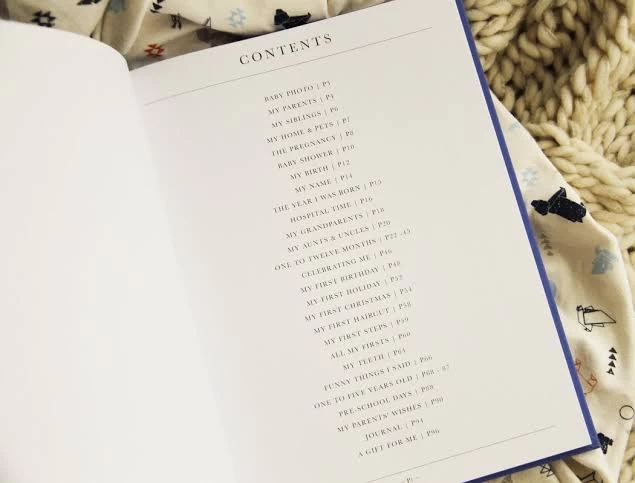 CONTENTS
BABY PHOTO | P3
MY PARENTS | P4
MY SIBLINGS | P6
MY HOME & PETS | P7
THE PREGNANCY | P8
BABY SHOWER | P10
MY BIRTH | P12
MY NAME | P14
THE YEAR I WAS BORN | P15
HOSPITAL TIME | P16
MY GRANDPARENTS | P18
MY AUNTS & UNCLES | P20
ONE TO TWELVE MONTHS | P22 - 45
CELEBRATING ME | P46
MY FIRST BIRTHDAY | P48
MY FIRST HOLIDAY | P52
MY FIRST CHRISTMAS | P54
MY FIRST HAIRCUT | P58
MY FIRST STEPS | P59
ALL MY FIRSTS | P60
MY TEETH | P64
FUNNY THINGS I SAID | P66
ONE TO FIVE YEARS OLD | P68 - 87
PRE-SCHOOL DAYS | P88
MY PARENTS' WISHES | P90
JOURNAL | P94
A GIFT FOR ME | P96
P1 –